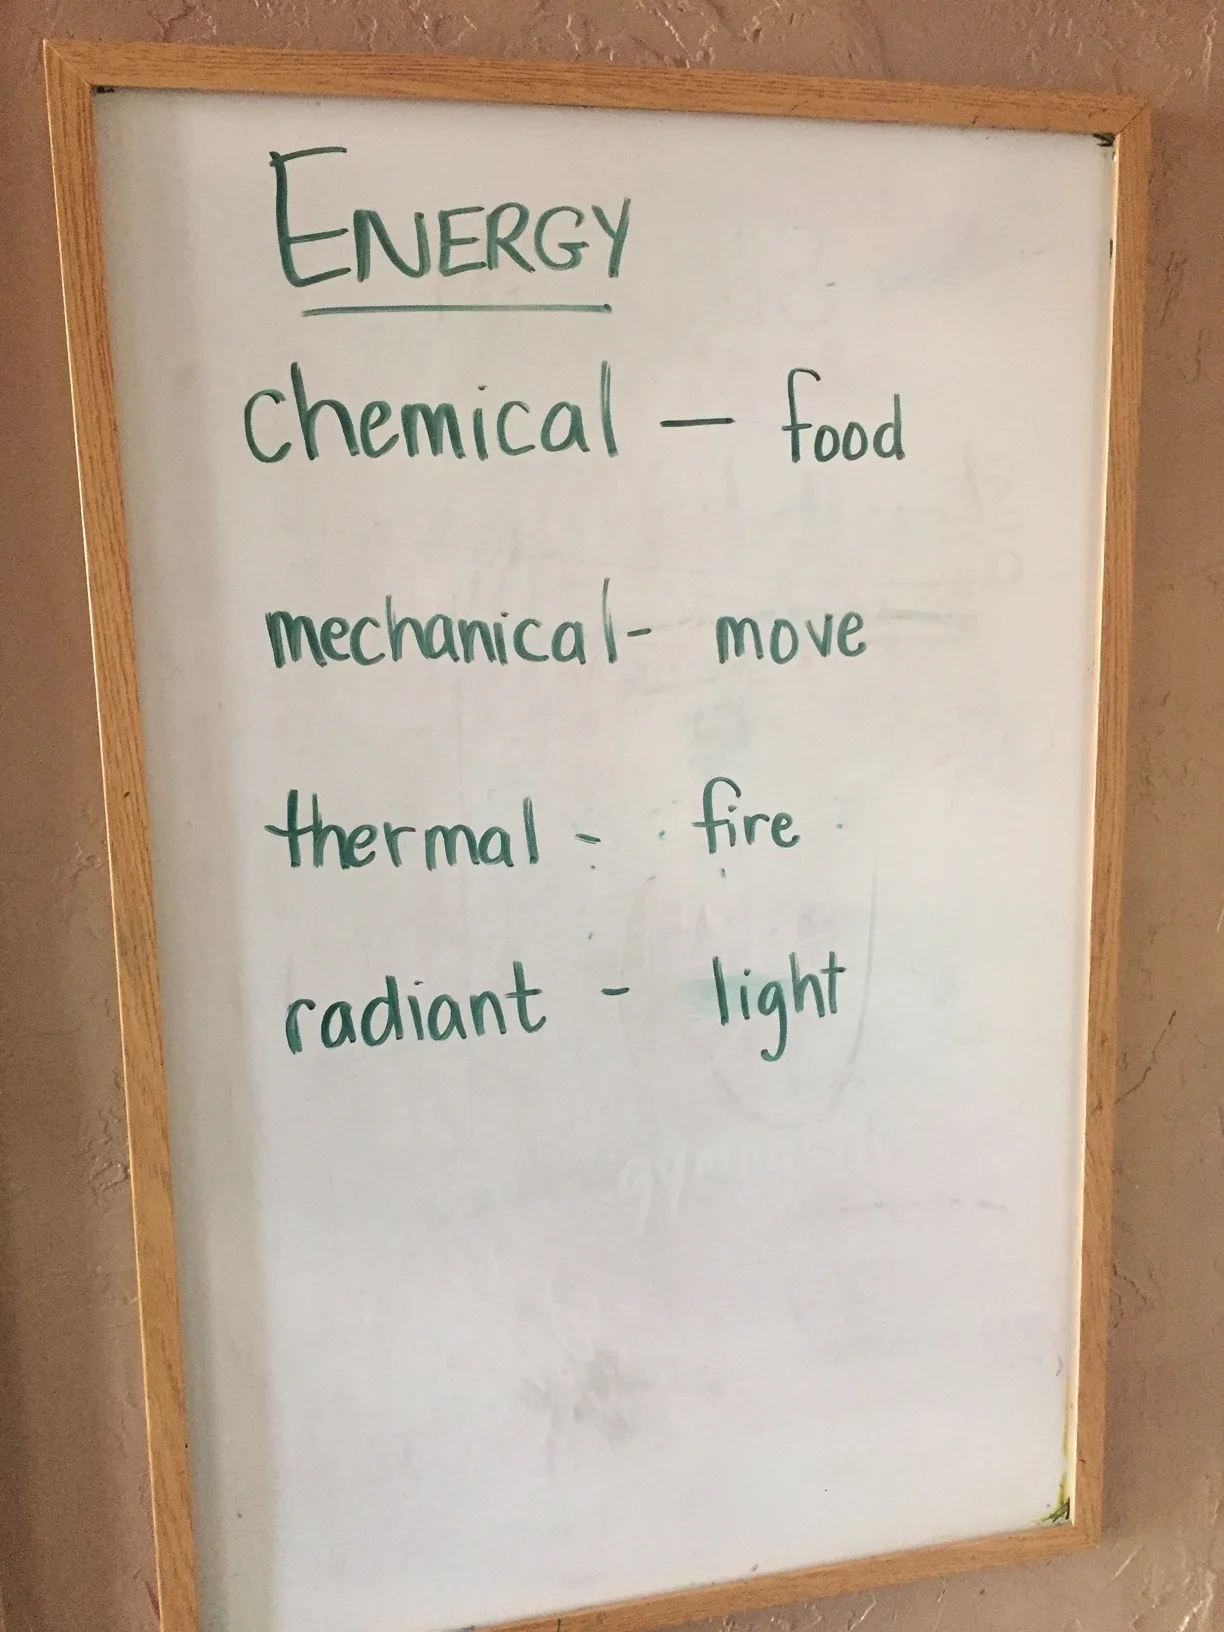 ENERGY
chemical — food
mechanical - move
thermal - fire
radiant - light